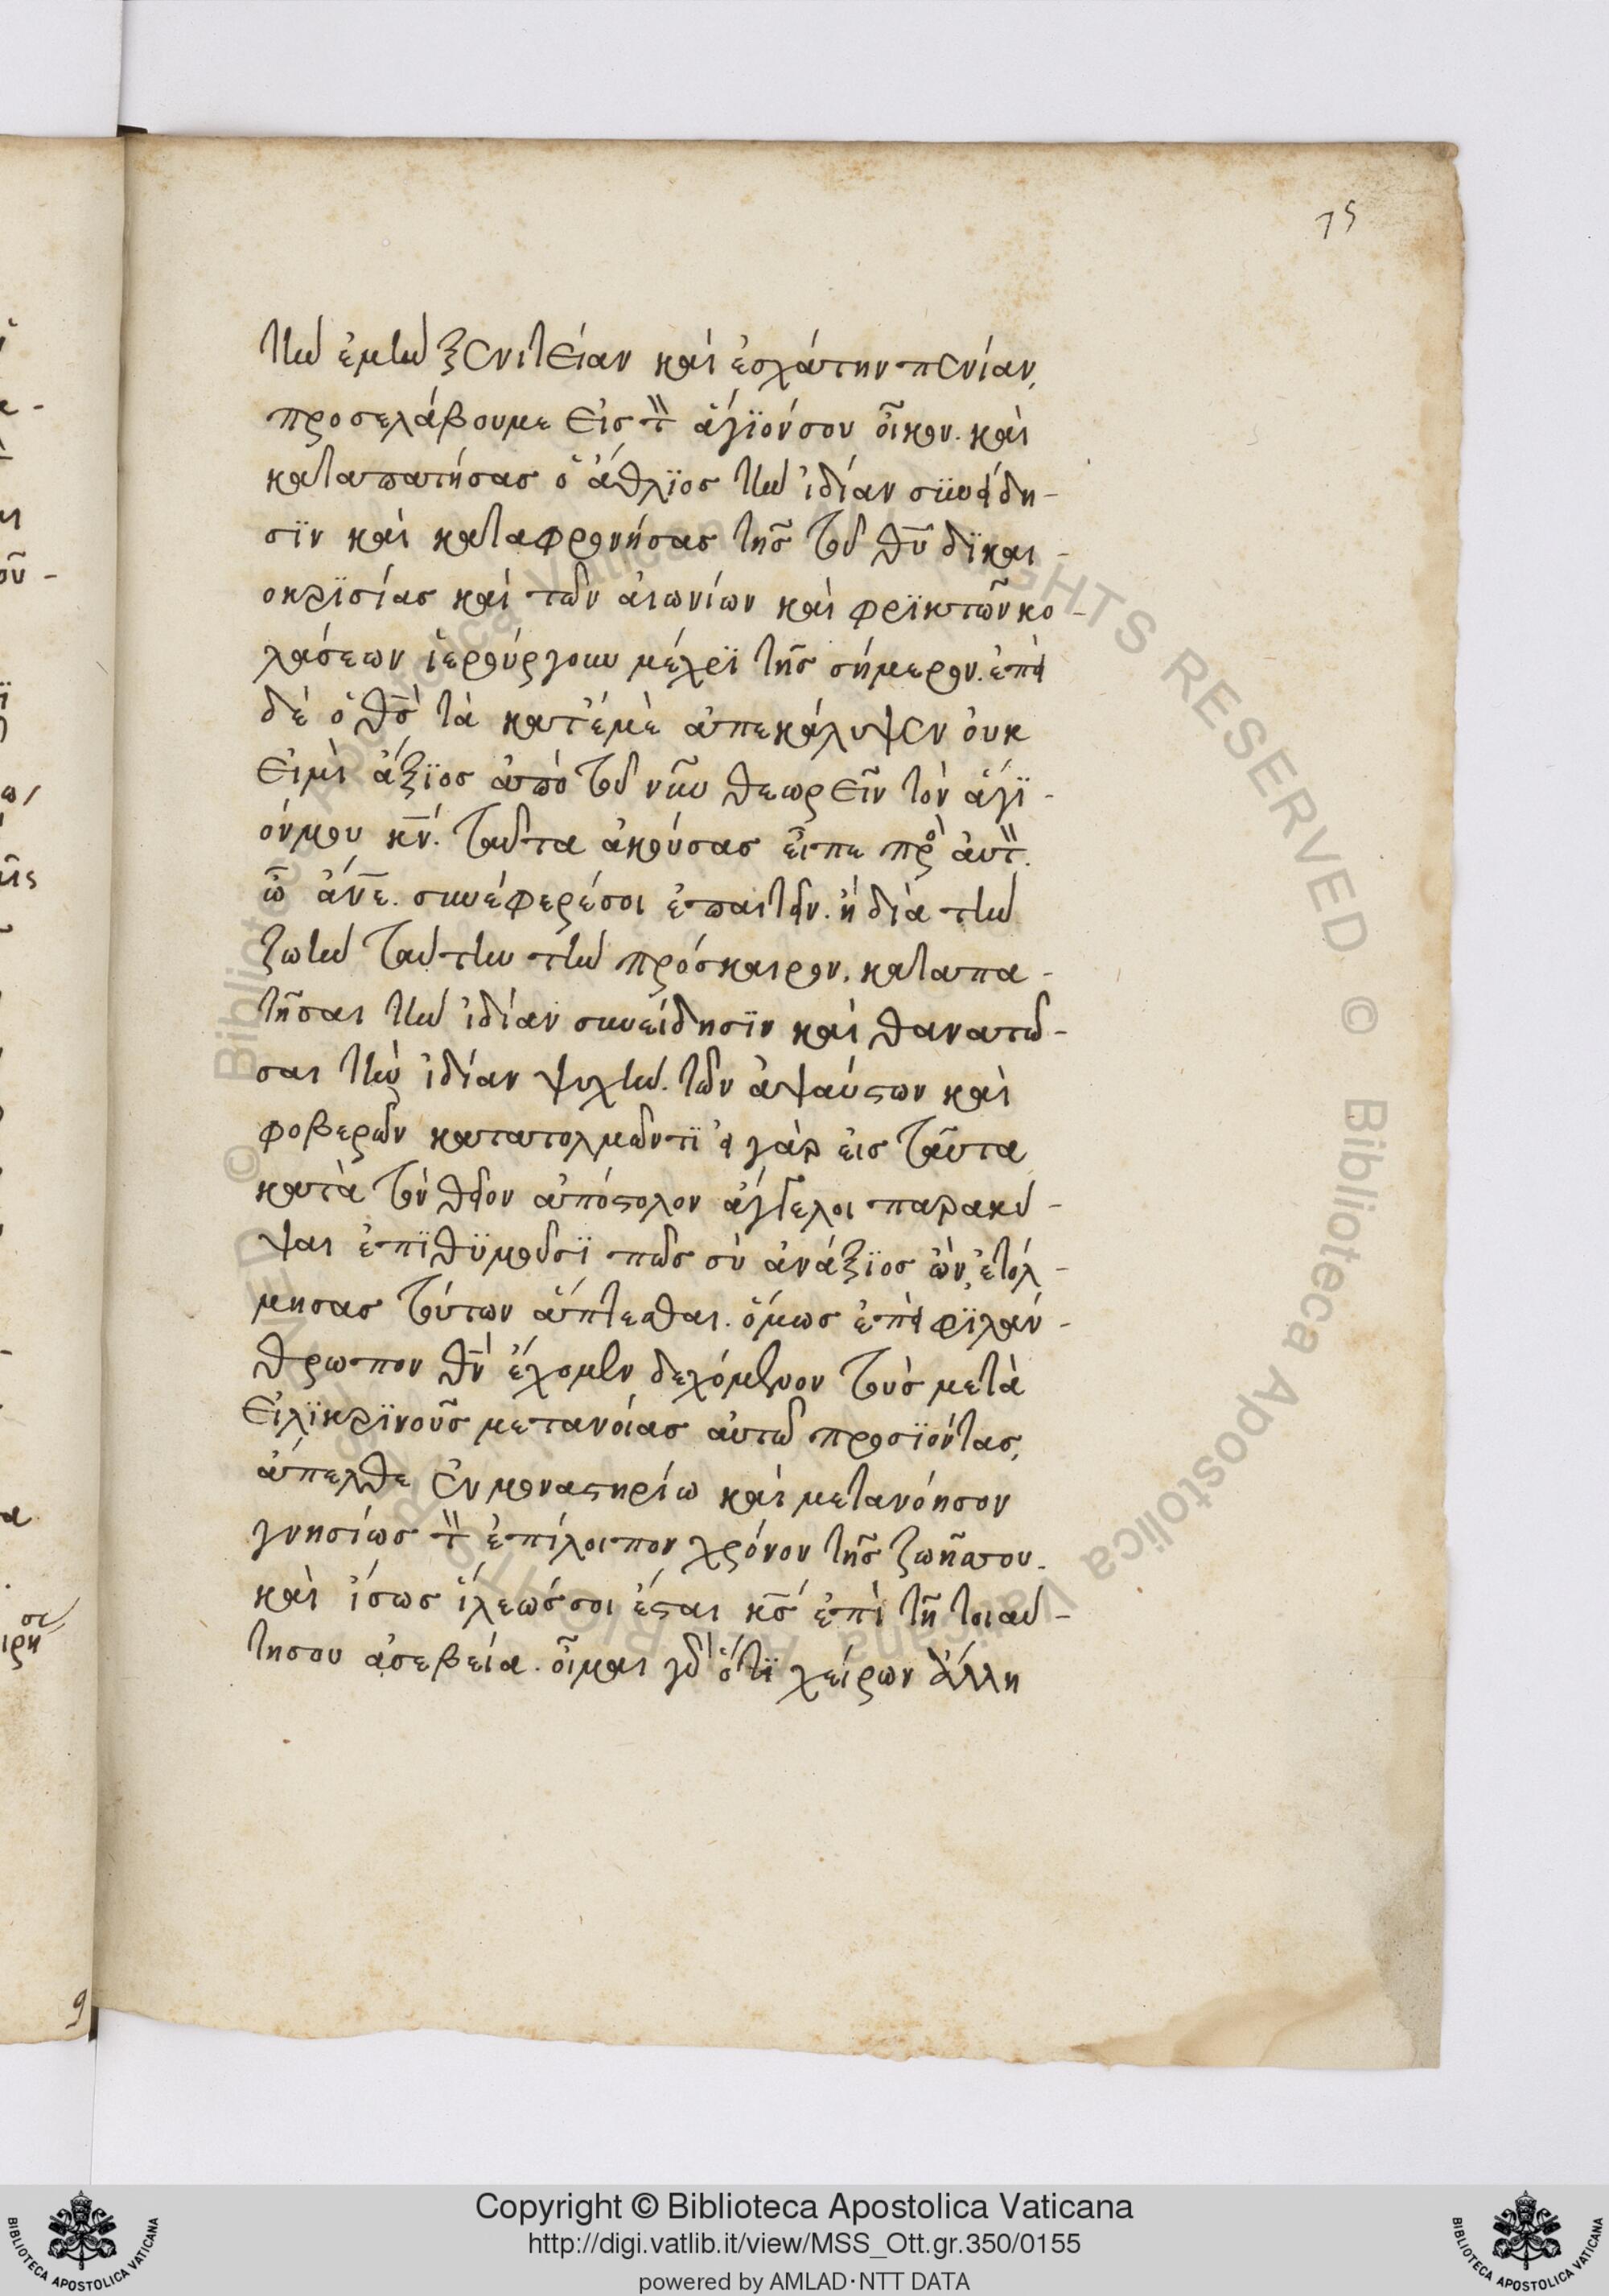 75
τὴν ἐμὴν ξενιτείαν καὶ ἐσχάτην πενίαν,
προσελάβου με εἰς τὸν ἅγϊόν σου οἶκον. καὶ
καταπατήσας ὁ ἄθλϊος τὴν ἰδίαν συνείδη-
σϊν καὶ καταφρονήσας τῆς τοῦ θυ δϊκαι-
οκρϊσίας καὶ τῶν αἰωνίων καὶ φρϊκτῶν κο-
λάσεων ἱερούργουν μέχρϊ τῆς σήμερον. ἐπεὶ
δὲ ὁ θς τὰ κατ' ἐμὲ ἀπεκάλυψεν οὐκ
εἰμὶ ἄξϊος ἀπὸ τοῦ νῦν θεωρεῖν τὸν ἅγϊ-
όν μου κν. ταῦτα ἀκούσας εἶπε πρὸς αὐτὸν.
ὦ ἄνε. συνέφερέ σοι ἐπαιτεῖν. ἢ διὰ τὴν
ζωὴν ταύτην τὴν πρόσκαιρον, καταπα-
τῆσαι τὴν ἰδίαν συνείδησϊν καὶ θανατῶ-
σαι τὴν ἰδίαν ψυχὴν. τῶν ἀψαύστων καὶ
φοβερῶν κατατολμῶντϊ εἰ γὰρ εἰς ταῦτα
κατὰ τὸν θεῖον ἀπόστολον ἄγγελοι παρακύ-
ψαι ἐπϊθϋμοῦσϊ πῶς σὺ ἀνάξϊος ὢν, ἐτόλ-
μησας τούτων ἅπτεσθαι. ὅμως ἐπεὶ φϊλάν-
θρωπον θν ἔχομεν δεχόμενον τοὺς μετὰ
εἰλϊκρϊνοῦς μετανοίας αὐτῶ προσϊόντας,
ἄπελθε ἐν μοναστηρίω καὶ μετανόησον
γνησίως τὸν ἐπίλοιπον χρόνον τῆς ζωῆς σου.
καὶ ἴσως ἵλεώς σοι ἔσται κς ἐπὶ τῆ τοιαύ-
τη σου ἀσεβεία. οἶμαι γοῦν ὅτϊ χείρων ἄλλη
Copyright © Biblioteca Apostolica Vaticana
http://digi.vatlib.it/view/MSS_Ott.gr.350/0155
powered by AMLAD·NTT DATA